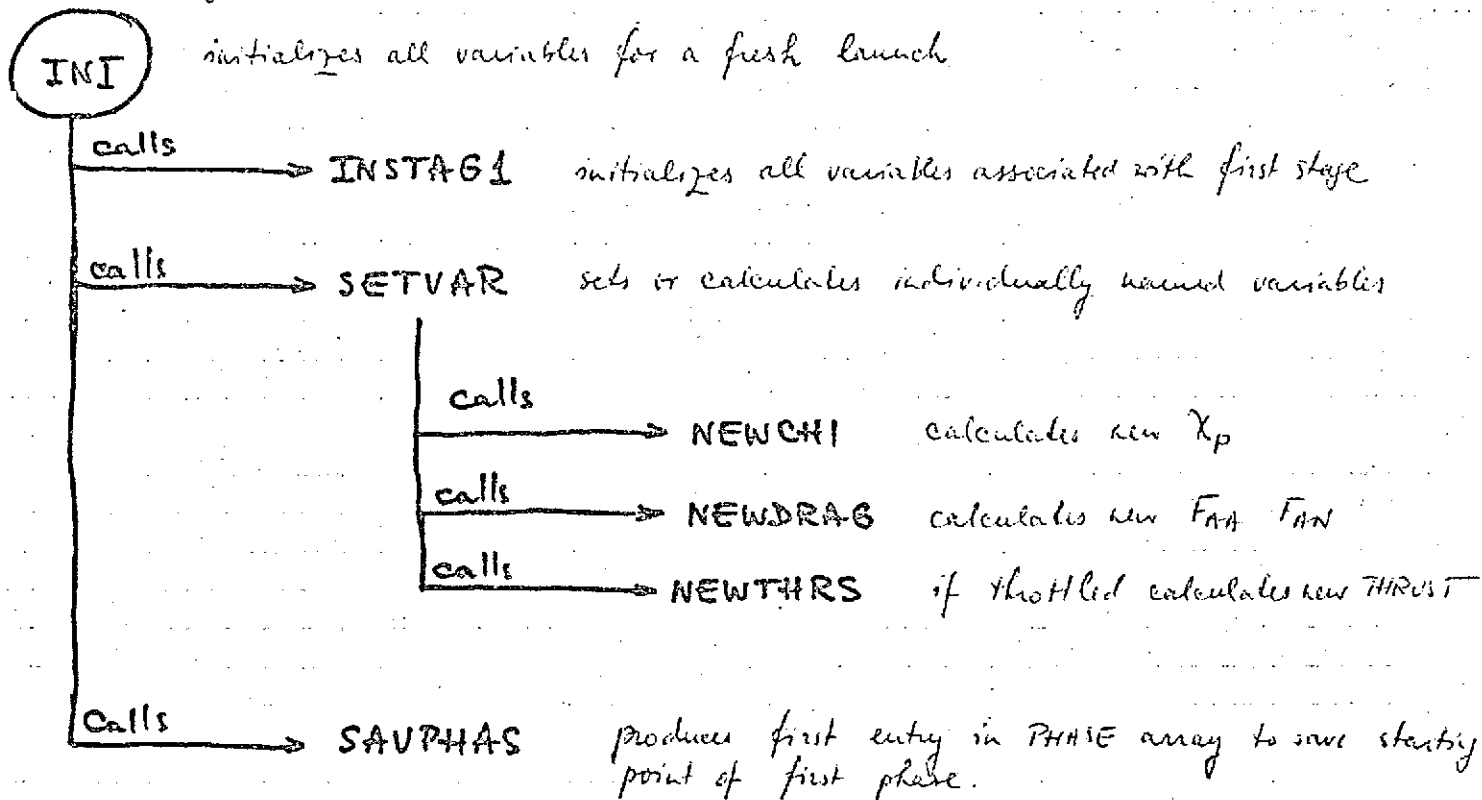 INI initializes all variables for a fresh launch
calls INSTAG1 initializes all variables associated with first stage
calls SETVAR sets or calculates individually named variables
calls NEWCHI calculates new χp
calls NEWDRAG calculates new FAA FAN
calls NEWTHRS if throttled calculates new THRUST
calls SAVPHAS produces first entry in PHASE array to save starting
point of first phase.